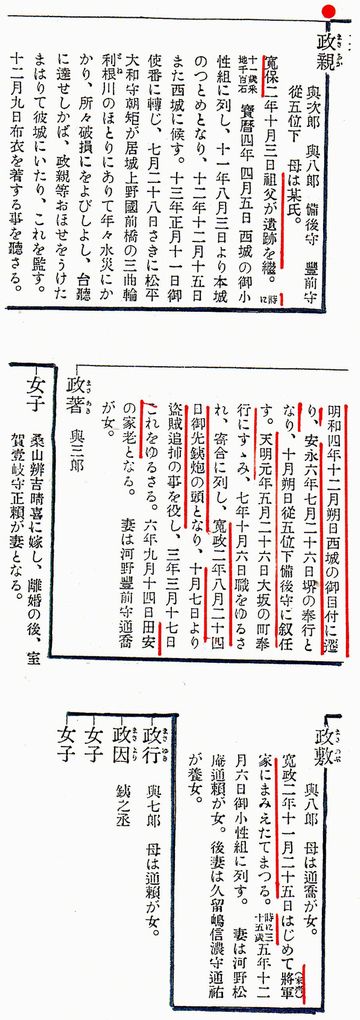 政親
まさちか
與次郎 與八郎 備後守 豐前守
從五位下 母は某氏。
寬保二年十月三日祖父が遺跡を繼。時に
十一歲采地千百石 寶曆四年四月五日西城の御小
性組に列し、十一年八月三日より本城
のつとめとなり、十二年十二月十五日
また西城に候す。十三年正月十一日御
使番に轉じ、七月二十八日さきに松平
大和守朝矩が居城上野國前橋の三曲輪
利根川のほとりにありて年々水災にか
かり、所々破損にをよびしよし、台聽
に達せしかば、政親等おほせをうけた
まはりて彼城にいたり、これを監す。
十二月九日布衣を著する事を聽さる。
明和四年十二月朔日西城の御目付に遷
り、安永六年七月二十六日堺の奉行と
なり、十月朔日從五位下備後守に叙任
す。天明元年五月二十六日大坂の町奉
行にすゝみ、七年十月六日職をゆるさ
れ、寄合に列し、寬政二年八月二十四
日御先鐵炮の頭となり、十月七日より
盜賊追捕の事を役し、三年三月十七日
これをゆるさる。六年九月十四日田安
の家老となる。 妻は河野豐前守通喬
が女。
政著
まさあき
與三郎
女子
桑山辨吉晴喜に嫁し、離婚の後、室
賀壹岐守正賴が妻となる。
政敷
まさのぶ
與八郎 母は通喬が女。
寬政二年十一月二十五日はじめて將軍
家にまみえたてまつる。時に三十五歲 五年十二
月六日御小性組に列す。 妻は河野松
庵通賴が女。後妻は久留嶋信濃守通祐
が養女。
政行
まさゆき
與七郎 母は通賴が女。
政因
まさより
銕之丞
女子
女子